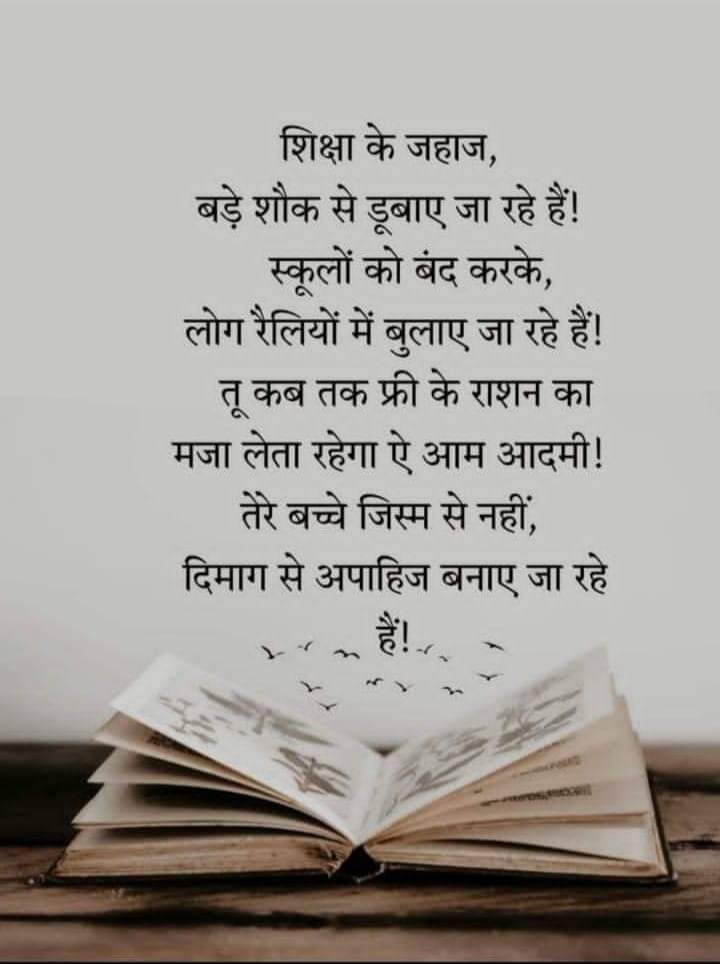 शिक्षा के जहाज,
बड़े शौक से डूबाए जा रहे हैं!
स्कूलों को बंद करके,
लोग रैलियों में बुलाए जा रहे हैं!
तू कब तक फ्री के राशन का
मजा लेता रहेगा ऐ आम आदमी!
तेरे बच्चे जिस्म से नहीं,
दिमाग से अपाहिज बनाए जा रहे
हैं!